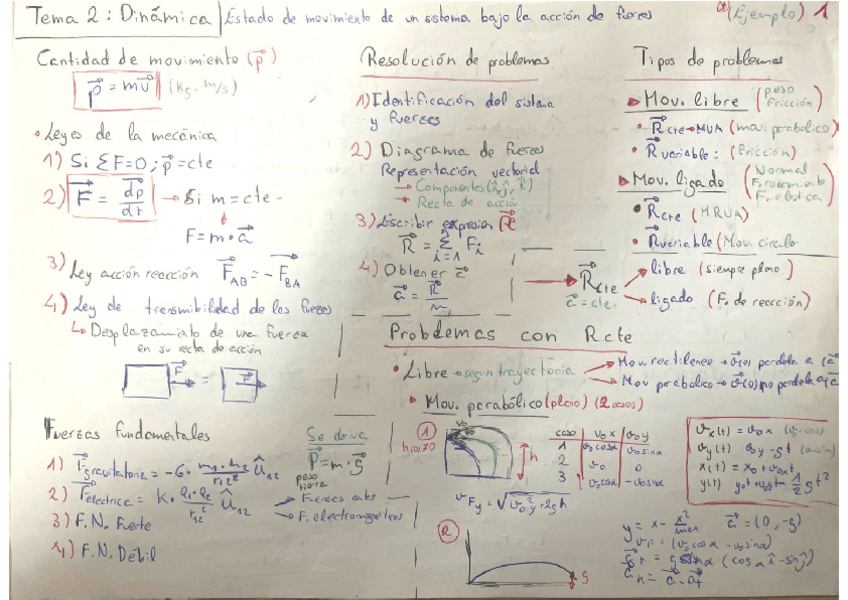 Tema 2: Dinámica
Estado de movimiento de un sistema bajo la acción de fuerzas
(Ejemplo) 1
Cantidad de movimiento (p⃗)
p⃗ = mv⃗ (kg · m/s)
• Leyes de la mecánica
1) Si ΣF=0; p⃗=cte
2) F⃗ = dp⃗/dt → Si m=cte -
F=m·a⃗
3) Ley acción reacción F⃗AB = -F⃗BA
4) Ley de transmibilidad de las fuerzas
↳ Desplazamiento de una fuerza
en su recta de acción
F⃗ = F⃗
Fuerzas fundamentales
1) F⃗gravitatoria = -G · m1·m2/r12² û12
2) F⃗electrica = K · q1·q2/r12² û12
3) F.N. Fuerte
4) F.N. Débil
Se deriva
P⃗ = m·g⃗
peso
tierra
→ F. electromagnéticas
Resolución de problemas
1) Identificación del sistema
y fuerzas
2) Diagrama de fuerzas
Representación vectorial
→ Componentes
→ Recta de acción
3) Escribir expresión R⃗
R⃗ = Σ Fi
i=1
4) Obtener a⃗
a⃗ = R⃗/m
Tipos de problemas
Mov. libre (peso
fricción)
• R⃗cte → MUA (mov. parabolico)
• R⃗ variable: (fricción)
Mov. ligado (Normal
F. elastica)
• R⃗cte (MRUA)
• R⃗variable (Mov. circular
→ R⃗cte
a⃗ = cte.
libre (siempre plano)
ligado (F. de reacción)
Problemas con Rcte
• Libre → segun trayectoria
Mov. rectilineo → v⃗(0) paralela a (a⃗
Mov parabolico → v⃗(0) no paralela a (a⃗
Mov. parabólico (plano) (2 casos)
1
v0
h(0)≠0
h
caso v0x v0y
1 v0cosα v0sinα
2 v0 0
3 v0cosα -v0sinα
vFy = √v0y²+2gh
vx(t) = v0x
vy(t) v0y -gt
x(t) = x0 + v0xt
y(t) y0+v0yt - 1/2 gt²
2
g
a⃗ = (0, -g)
vF = (v0cosα - v0sinα)